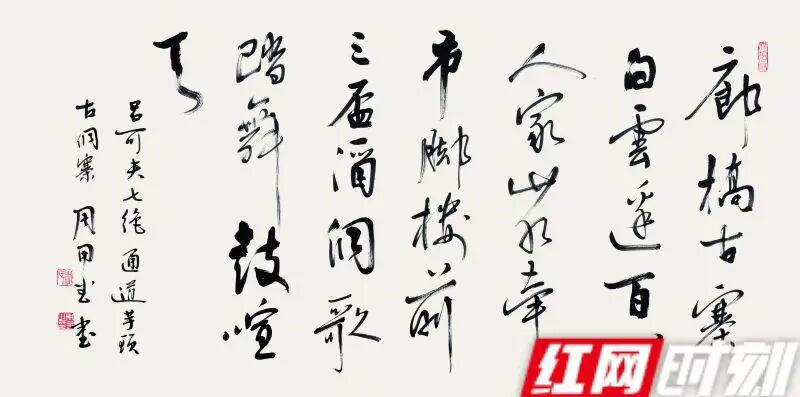 廊橋古寨
白雲邊百
人家山水牽
吊脚樓前
三盃酒侗歌
踏舞鼓喧
天
吕可夫七绝 通道芋頭
古侗寨 周 书
红网时刻